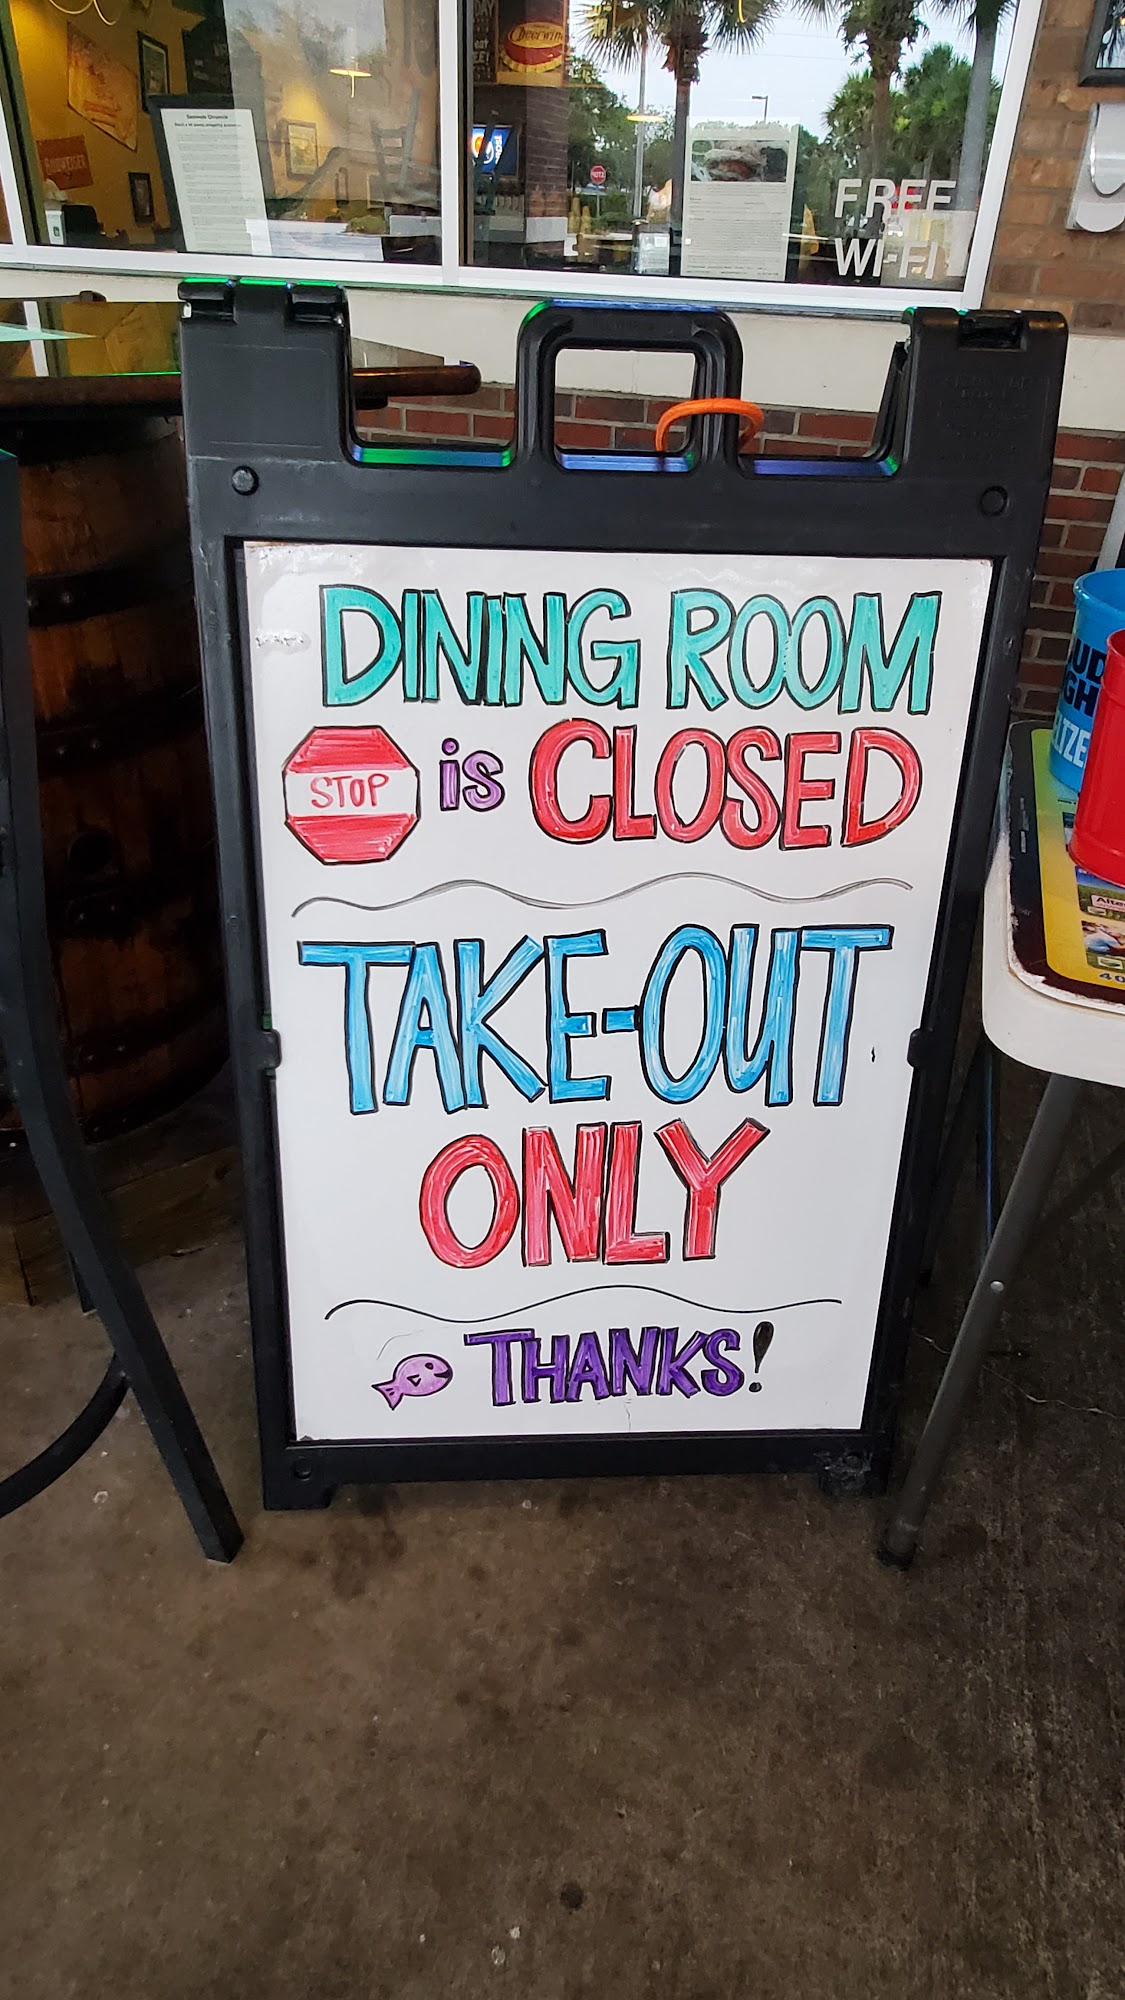 Cheerwine
BUDWEISER
FREE
WI-FI
DINING ROOM
STOP is CLOSED
TAKE-OUT
ONLY
THANKS!